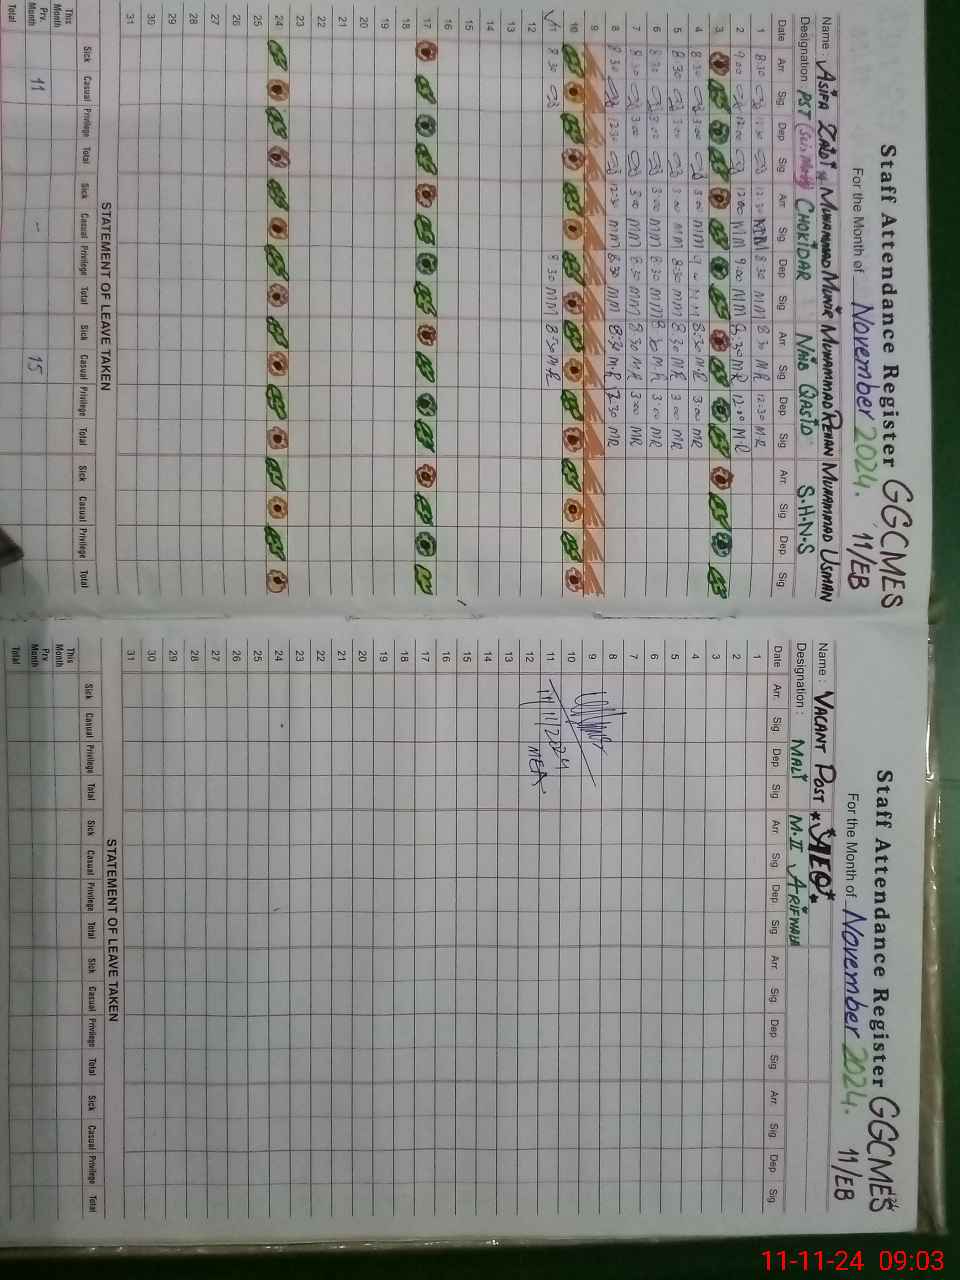 Staff Attendance Register GGCMES
For the Month of November 2024. 11/EB
Name : ASIFA ZAIDI * MUHAMMAD MUNIR MUHAMMAD REHAN MUHAMMAD USMAN
Designation : PST CHOKIDAR NAIB QASID S.H.N.S
Date Arr. Sig Dep Sig Arr Sig Dep Sig Arr Sig Dep Sig Arr Sig Dep Sig
1 8:30 12:30 MM 8:30 MM 8:30 MR 12:30 M.R
2 9:00 12:00 12:00 MM 9:00 MM 8:30 MR 12:00 M.R
3
4 8:30 3:00 3:00 MM MM 8:30 M.R 3:00 MR
5 8:30 3:00 3:00 MM 8:30 MM 8:30 M.R 3:00 MR
6 8:30 3:00 3:00 MM 8:30 MM 8:30 M.R 3:00 MR
7 8:30 3:00 3:00 MM 8:30 MM 8:30 M.R 3:00 MR
8 8:30 12:30 12:30 MM 8:30 MM 8:30 M.R 12:30 MR
9
10
11 8:30 8:30 MM 8:30 M.R
12
13
14
15
16
17
18
19
20
21
22
23
24
25
26
27
28
29
30
31
STATEMENT OF LEAVE TAKEN
Sick Casual Privilege Total Sick Casual Privilege Total Sick Casual Privilege Total Sick Casual Privilege Total
This Month
Prv. Month 11 -- 15
Total
Staff Attendance Register GGCMES
For the Month of November 2024. 11/EB
Name : VACANT POST * AEO *
Designation : MALI M-II ARIFWALA
Date Arr. Sig Dep Sig Arr Sig Dep Sig Arr Sig Dep Sig Arr Sig Dep Sig
1
2
3
4
5
6
7
8
9
10
11 11/11/2024
12 MEA
13
14
15
16
17
18
19
20
21
22
23
24
25
26
27
28
29
30
31
STATEMENT OF LEAVE TAKEN
Sick Casual Privilege Total Sick Casual Privilege Total Sick Casual Privilege Total Sick Casual Privilege Total
This Month
Prv. Month
Total
11-11-24 09:03